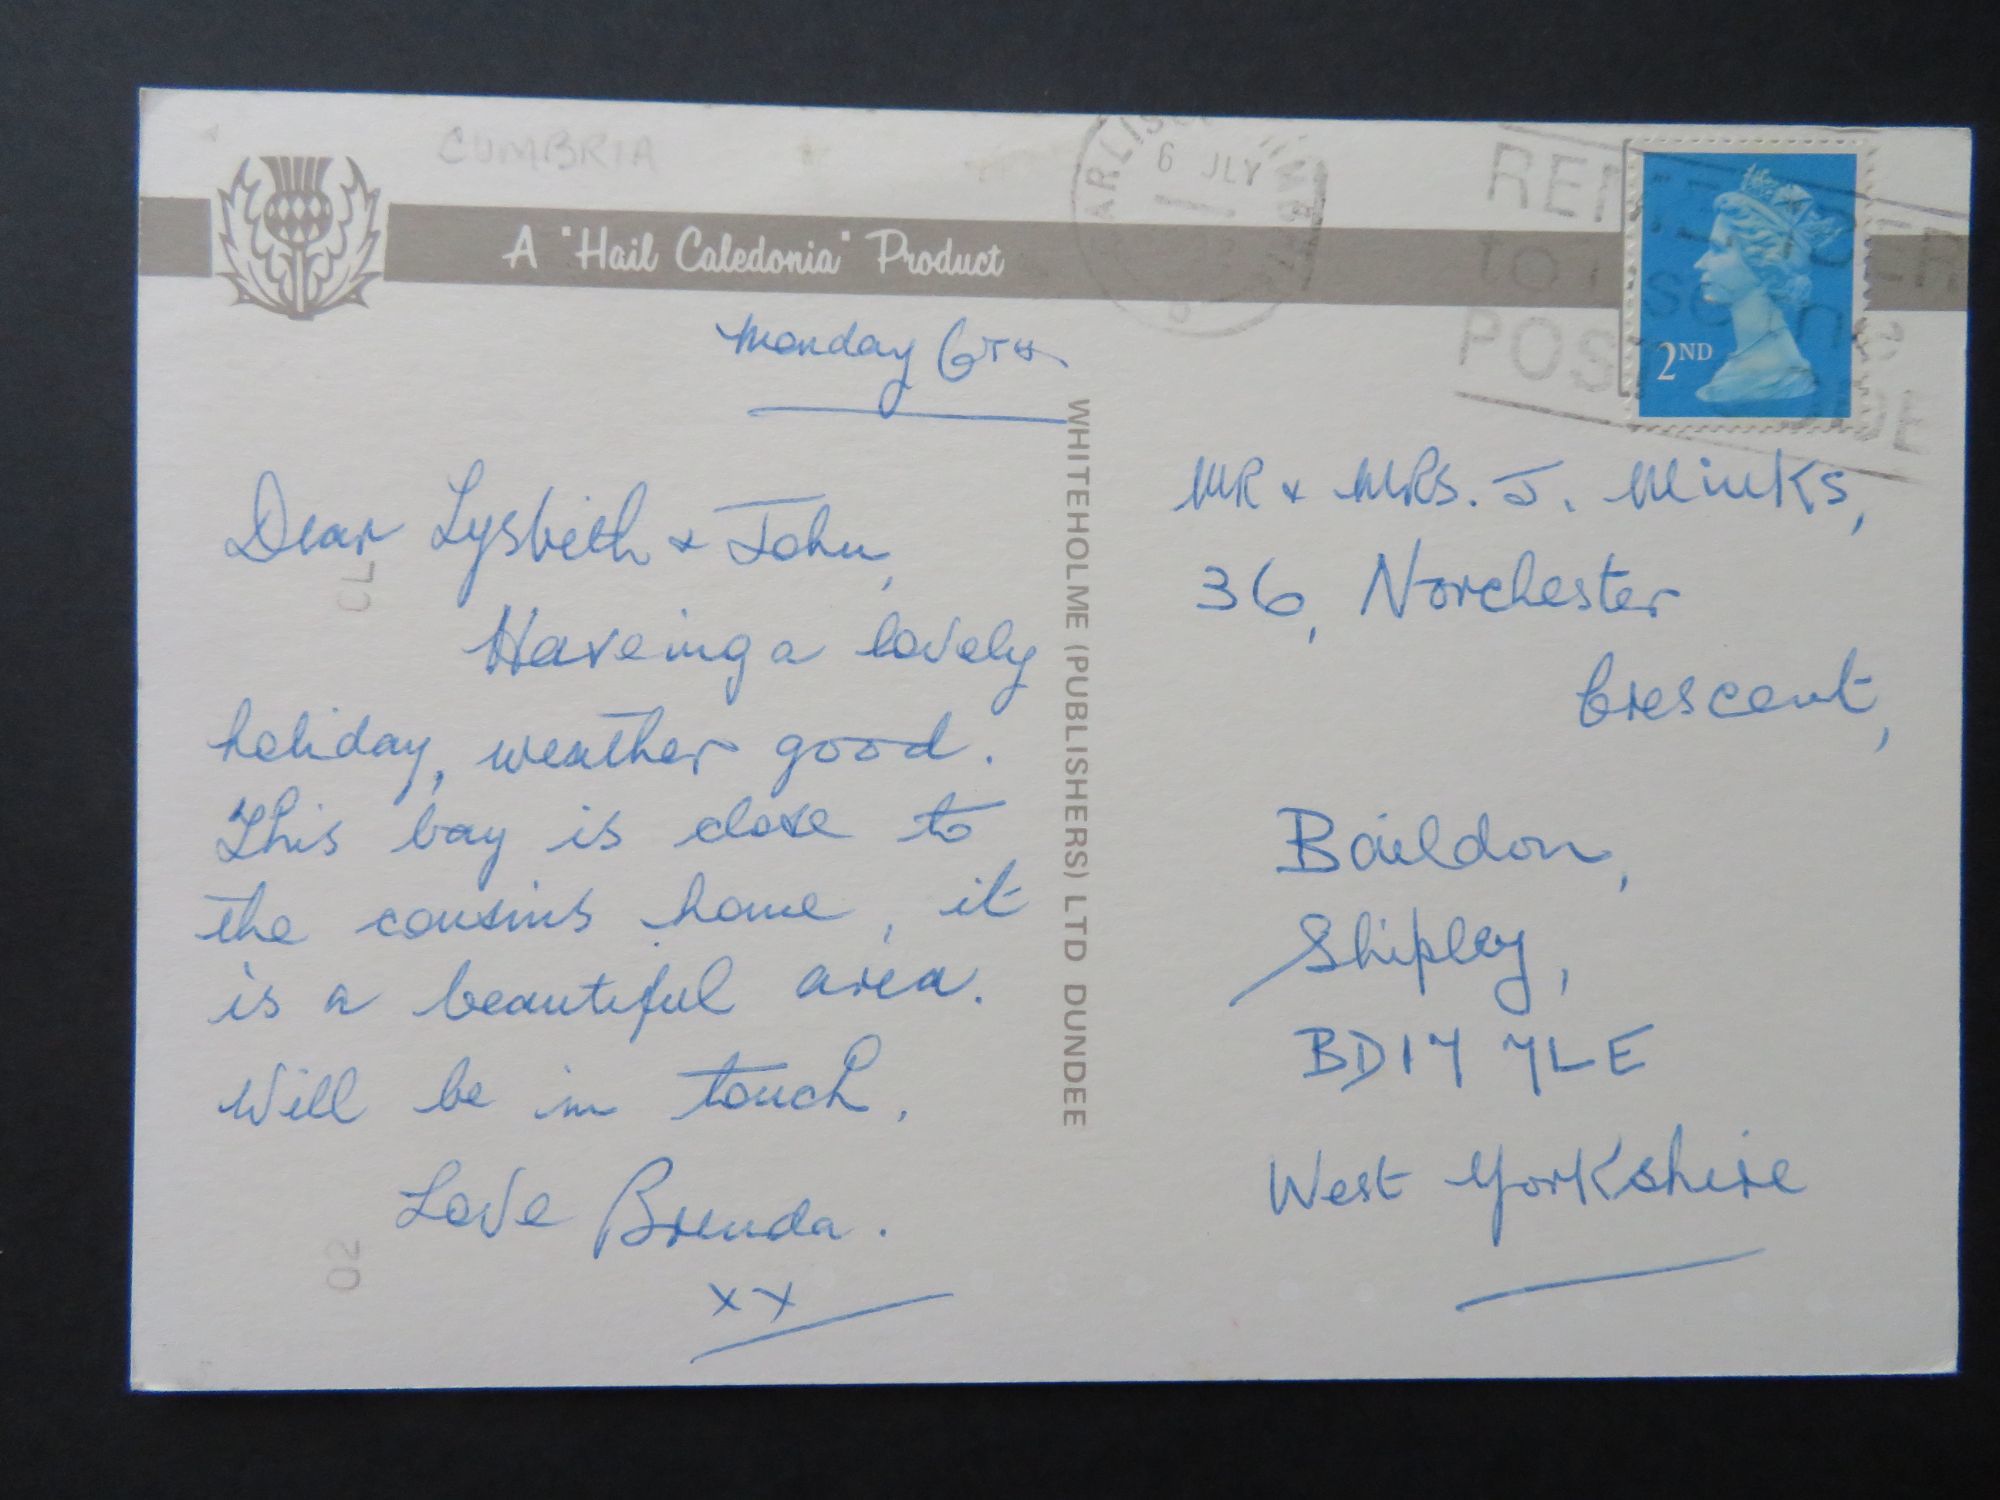 CUMBRIA
A "Hail Caledonia" Product
6 JLY
2ND
Monday 6TH
Dear Lysbeth & John,
Haveing a lovely
holiday, weather good.
This bay is close to
the cousins home, it
is a beautiful area.
Will be in touch.
Love Brenda.
xx
CL
02
WHITEHOLME (PUBLISHERS) LTD DUNDEE
MR & MRS. J. Minks,
36, Norchester
Crescent,
Baildon,
Shipley,
BD17 7LE
West Yorkshire